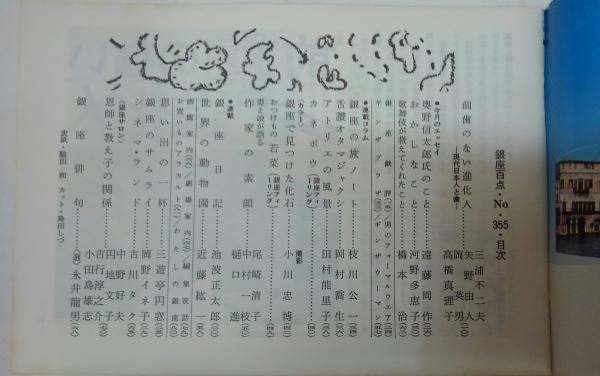 銀座百点・No・355・目次
前歯のない進化人
―現代日本人と歯―
三浦不二夫
矢野由人
岡英男
高橋真理子
●今月のエッセイ
奥野信太郎氏のこと 遠藤周作
おかしなこと 河野多恵子
歌舞伎が教えてくれたこと 橋本治
銀座戯評 男のフォーマルウエア
ギンザプラザ ギンザウーマン
●連載コラム
銀座の旅ノート 枝川公一
舌讃オタマジャクシ 岡村喬生
アトリエの風景 田村能里子
カネボウ(銀座フィーリング)
〈カラー〉
銀座で見つけた化石 撮影 小川忠博
おつけもの若菜(銀座フィーリング)
妻と娘が語る
作家の素顔
尾崎清子
中村一枝
樋口進
●連載
銀座日記 池波正太郎
世界の動物園 近藤紘一
画廊案内 劇場案内 編集夜話
お買いものアラカルト わたしの銀座
思い出の一杯 三遊亭円窓
銀座のサムライ 岡野イネ子
シネマ・ランド 古川タク
〈銀座サロン〉
恩師と教え子の関係
中野好夫
円地文子
吉行淳之介
小田島雄志
銀座俳句 (選)永井龍男
表紙・脇田和 カット・島田しづ